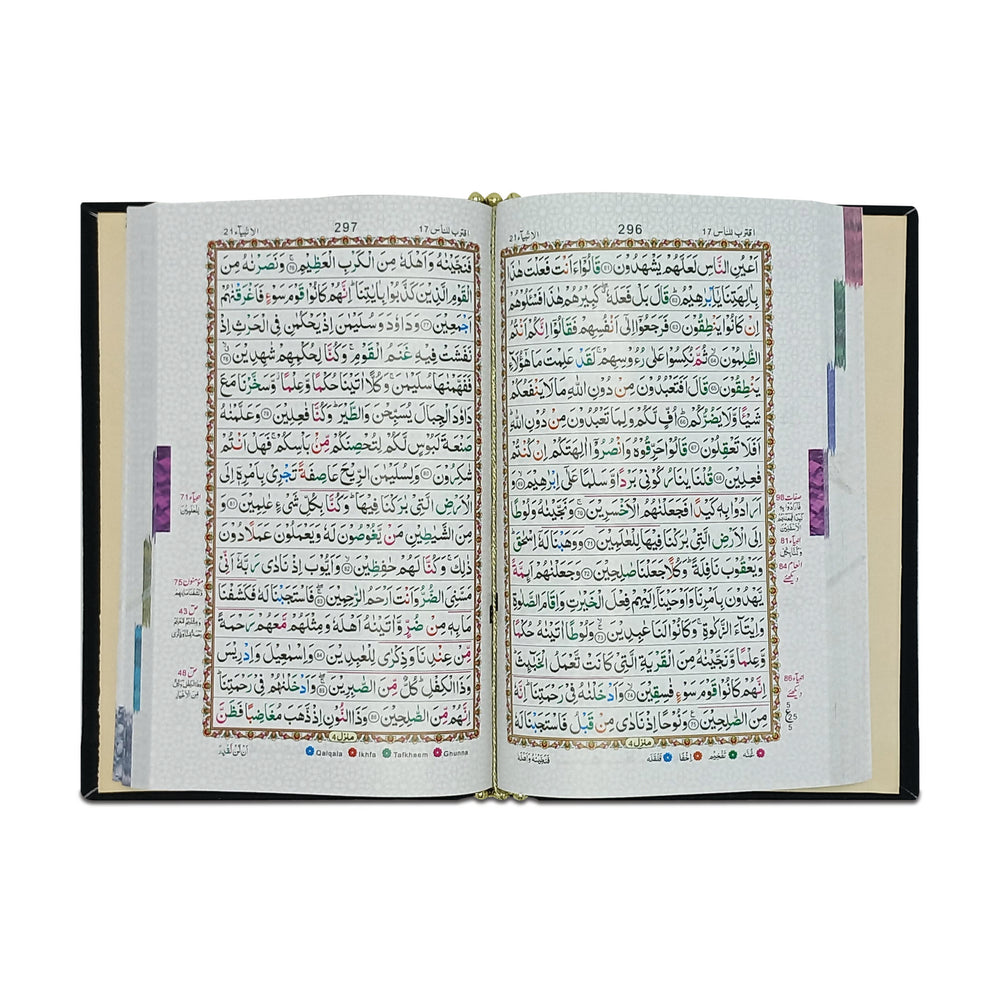 اقترب للناس 17
296
الانبیآء 21
اَعۡيُنِ النَّاسِ لَعَلَّهُمۡ يَشۡهَدُوۡنَ ۞ قَالُوۡٓا ءَاَنۡتَ فَعَلۡتَ هٰذَا
بِاٰلِهَتِنَا يٰۤاِبۡرٰهِيۡمُ ۞ قَالَ بَلۡ فَعَلَهٗ كَبِيۡرُهُمۡ هٰذَا فَسۡـَٔلُوۡهُمۡ
اِنۡ كَانُوۡا يَنۡطِقُوۡنَ ۞ فَرَجَعُوۡۤا اِلٰٓى اَنۡفُسِهِمۡ فَقَالُوۡۤا اِنَّكُمۡ اَنۡتُمُ
الظّٰلِمُوۡنَ ۞ ثُمَّ نُكِسُوۡا عَلٰى رُءُوۡسِهِمۡ لَقَدۡ عَلِمۡتَ مَا هٰٓؤُلَآءِ
يَنۡطِقُوۡنَ ۞ قَالَ اَفَتَعۡبُدُوۡنَ مِنۡ دُوۡنِ اللّٰهِ مَا لَا يَنۡفَعُكُمۡ
شَيۡـًٔا وَّلَا يَضُرُّكُمۡ ۞ اُفٍّ لَّكُمۡ وَلِمَا تَعۡبُدُوۡنَ مِنۡ دُوۡنِ اللّٰهِ
اَفَلَا تَعۡقِلُوۡنَ ۞ قَالُوۡا حَرِّقُوۡهُ وَانۡصُرُوۡۤا اٰلِهَتَكُمۡ اِنۡ كُنۡتُمۡ
فٰعِلِيۡنَ ۞ قُلۡنَا يٰنَارُ كُوۡنِىۡ بَرۡدًا وَّسَلٰمًا عَلٰٓى اِبۡرٰهِيۡمَ ۞ وَ
اَرَادُوۡا بِهٖ كَيۡدًا فَجَعَلۡنٰهُمُ الۡاَخۡسَرِيۡنَ ۞ وَنَجَّيۡنٰهُ وَلُوۡطًا
اِلَى الۡاَرۡضِ الَّتِىۡ بٰرَكۡنَا فِيۡهَا لِلۡعٰلَمِيۡنَ ۞ وَوَهَبۡنَا لَهٗۤ اِسۡحٰقَ
وَيَعۡقُوۡبَ نَافِلَةً وَكُلًّا جَعَلۡنَا صٰلِحِيۡنَ ۞ وَجَعَلۡنٰهُمۡ اَئِمَّةً
يَّهۡدُوۡنَ بِاَمۡرِنَا وَاَوۡحَيۡنَاۤ اِلَيۡهِمۡ فِعۡلَ الۡخَيۡرٰتِ وَاِقَامَ الصَّلٰوةِ
وَاِيۡتَآءَ الزَّكٰوةِ وَكَانُوۡا لَنَا عٰبِدِيۡنَ ۞ وَلُوۡطًا اٰتَيۡنٰهُ حُكۡمًا
وَّعِلۡمًا وَّنَجَّيۡنٰهُ مِنَ الۡقَرۡيَةِ الَّتِىۡ كَانَتۡ تَّعۡمَلُ الۡخَبٰٓئِثَ
اِنَّهُمۡ كَانُوۡا قَوۡمَ سَوۡءٍ فٰسِقِيۡنَ ۞ وَاَدۡخَلۡنٰهُ فِىۡ رَحۡمَتِنَا اِنَّهٗ
مِنَ الصّٰلِحِيۡنَ ۞ وَنُوۡحًا اِذۡ نَادٰى مِنۡ قَبۡلُ فَاسۡتَجَبۡنَا لَهٗ
منزل 4
غنّه تفخیم اخفا قلقله
فَنَجَّيۡنٰهُ وَاَهۡلَهٗ
اقترب للناس 17
297
الانبیآء 21
فَنَجَّيۡنٰهُ وَاَهۡلَهٗ مِنَ الۡكَرۡبِ الۡعَظِيۡمِ ۞ وَنَصَرۡنٰهُ مِنَ
الۡقَوۡمِ الَّذِيۡنَ كَذَّبُوۡا بِاٰيٰتِنَا اِنَّهُمۡ كَانُوۡا قَوۡمَ سَوۡءٍ فَاَغۡرَقۡنٰهُمۡ
اَجۡمَعِيۡنَ ۞ وَدَاوٗدَ وَسُلَيۡمٰنَ اِذۡ يَحۡكُمٰنِ فِى الۡحَرۡثِ اِذۡ
نَفَشَتۡ فِيۡهِ غَنَمُ الۡقَوۡمِ وَكُنَّا لِحُكۡمِهِمۡ شٰهِدِيۡنَ ۞
فَفَهَّمۡنٰهَا سُلَيۡمٰنَ وَكُلًّا اٰتَيۡنَا حُكۡمًا وَّعِلۡمًا وَّسَخَّرۡنَا مَعَ
دَاوٗدَ الۡجِبَالَ يُسَبِّحۡنَ وَالطَّيۡرَ وَكُنَّا فٰعِلِيۡنَ ۞ وَعَلَّمۡنٰهُ
صَنۡعَةَ لَبُوۡسٍ لَّكُمۡ لِتُحۡصِنَكُمۡ مِّنۡۢ بَاۡسِكُمۡ فَهَلۡ اَنۡتُمۡ
شٰكِرُوۡنَ ۞ وَلِسُلَيۡمٰنَ الرِّيۡحَ عَاصِفَةً تَجۡرِىۡ بِاَمۡرِهٖۤ اِلَى
الۡاَرۡضِ الَّتِىۡ بٰرَكۡنَا فِيۡهَا وَكُنَّا بِكُلِّ شَىۡءٍ عٰلِمِيۡنَ ۞ وَ
مِنَ الشَّيٰطِيۡنِ مَنۡ يَّغُوۡصُوۡنَ لَهٗ وَيَعۡمَلُوۡنَ عَمَلًا دُوۡنَ
ذٰلِكَ وَكُنَّا لَهُمۡ حٰفِظِيۡنَ ۞ وَاَيُّوۡبَ اِذۡ نَادٰى رَبَّهٗۤ اَنِّىۡ
مَسَّنِىَ الضُّرُّ وَاَنۡتَ اَرۡحَمُ الرّٰحِمِيۡنَ ۞ فَاسۡتَجَبۡنَا لَهٗ فَكَشَفۡنَا
مَا بِهٖ مِنۡ ضُرٍّ وَّاٰتَيۡنٰهُ اَهۡلَهٗ وَمِثۡلَهُمۡ مَّعَهُمۡ رَحۡمَةً
مِّنۡ عِنۡدِنَا وَذِكۡرٰى لِلۡعٰبِدِيۡنَ ۞ وَاِسۡمٰعِيۡلَ وَاِدۡرِيۡسَ
وَذَا الۡكِفۡلِ كُلٌّ مِّنَ الصّٰبِرِيۡنَ ۞ وَاَدۡخَلۡنٰهُمۡ فِىۡ رَحۡمَتِنَا
اِنَّهُمۡ مِّنَ الصّٰلِحِيۡنَ ۞ وَذَا النُّوۡنِ اِذْ ذَّهَبَ مُغَاضِبًا فَظَنَّ
منزل 4
Qalqala Ikhfa Tafkheem Ghunna